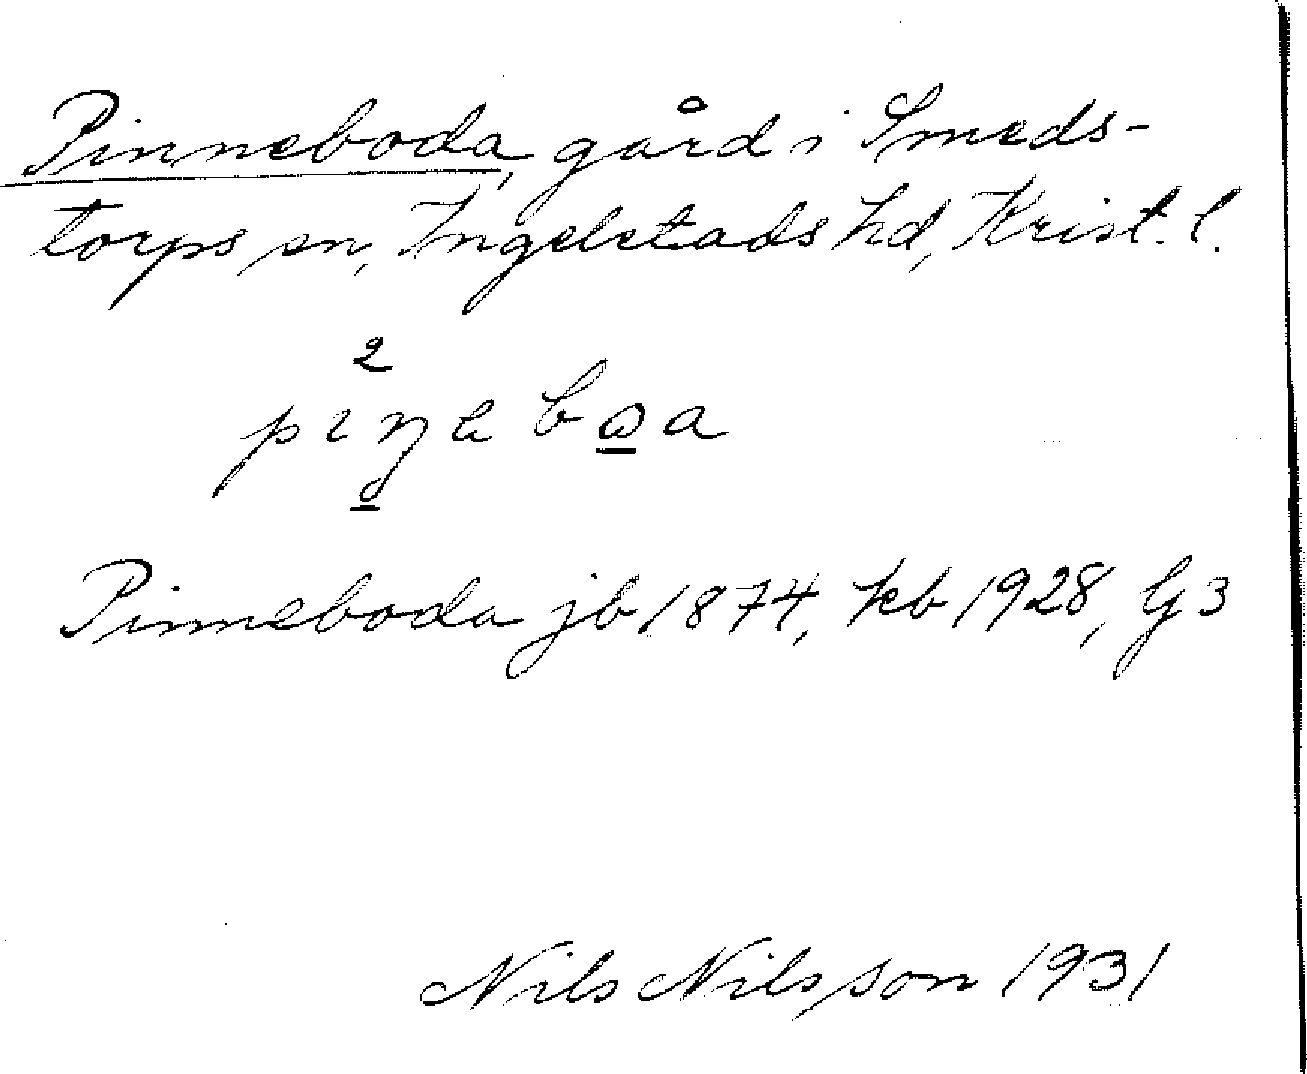 Pinneboda, gård i Smeds-
torps sn, Ingelstads hd, Krist. l.
2
pıŋa bωa
Pinneboda jb 1874, kb 1928, G 3
Nils Nilsson 1931